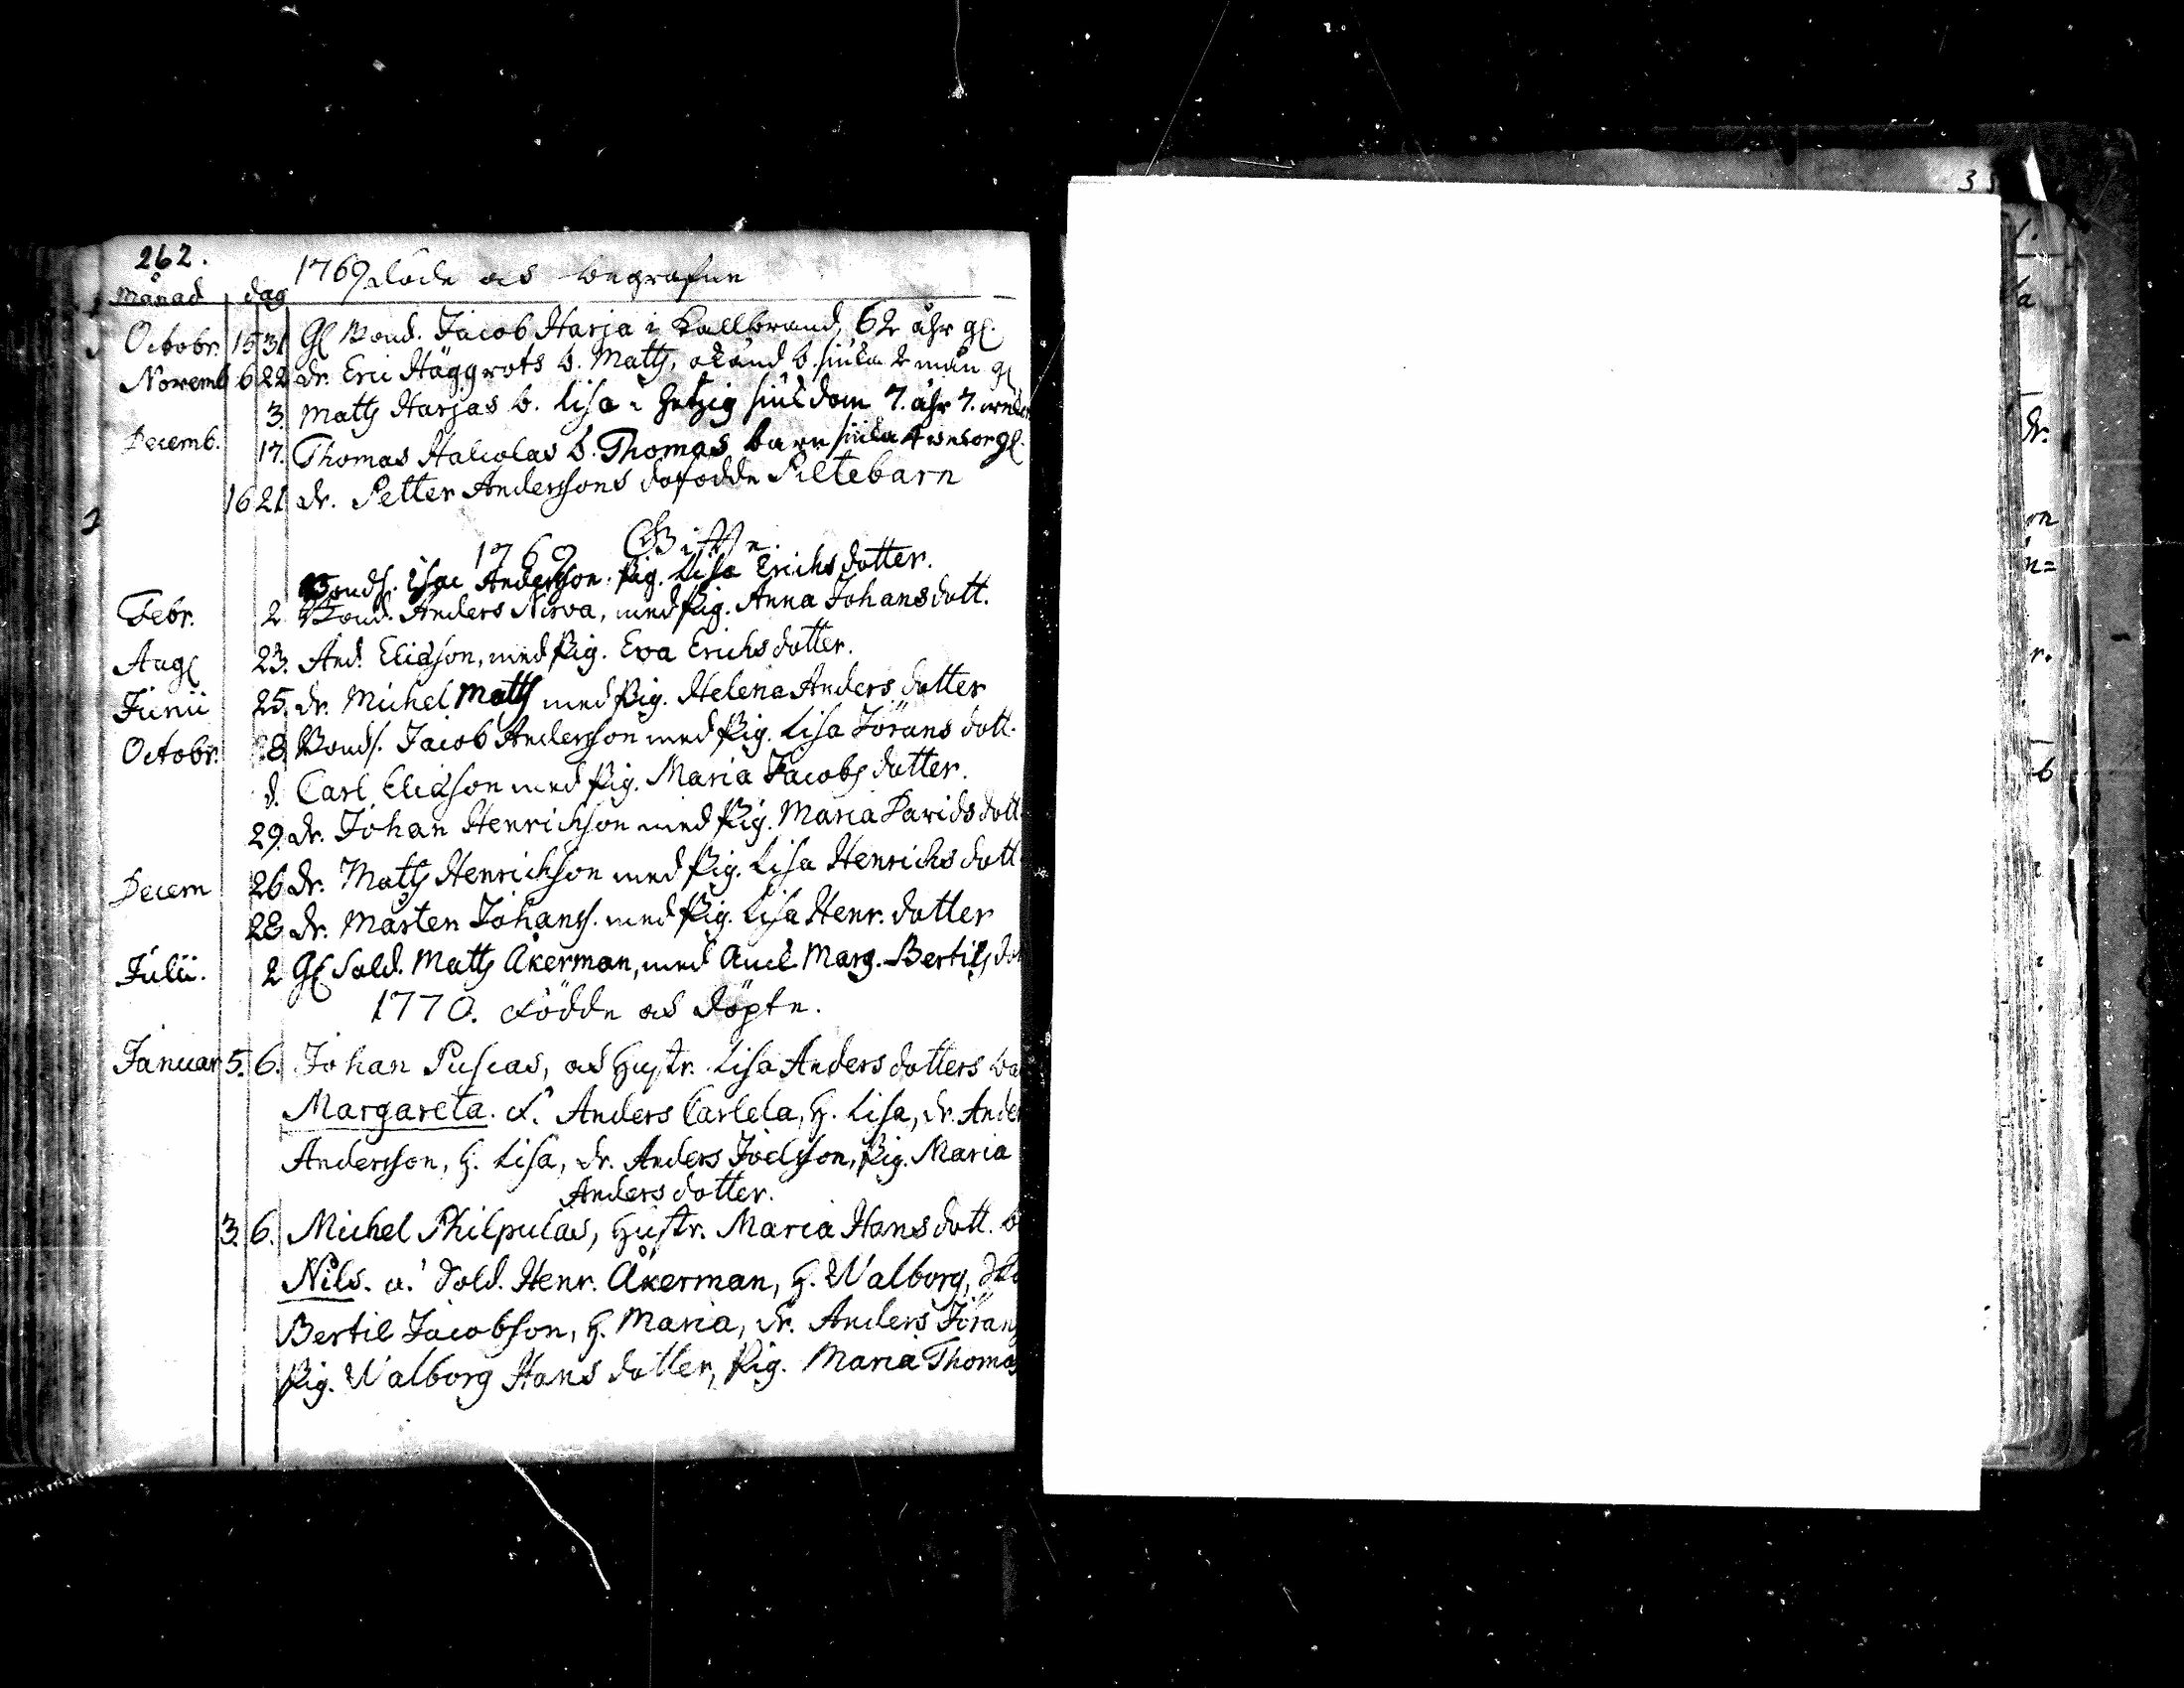 262.
1769. döde och begrafne
Månad dag
Octobr. 15 31 Gl Bond. Jacob Harja i Kallbrand, 62 åhr gl.
Novemb 6 22 dr. Eric Häggrots b. Matts, okänd b. siuka 2 mån gl
3. Matts Harjas b. Lisa i Hetzig siukdom 7. åhr 7. wekor
Decemb. 17. Thomas Halcolas b. Thomas barnsiuka 4 wekor gl.
16 21 dr. Petter Anderssons dödfödde Piltebarn
1769 Gifte.
Bonds. Isac Andersson. Pig. Lisa Erichsdotter.
Febr. 2 Bond. Anders Nirva, med Pig. Anna Johansdott.
Aug 23. And. Eliasson, med Pig. Eva Erichsdotter.
Junii 25. dr. Michel Matts med Pig. Helena Andersdotter
Octobr. 28. Bonds. Jacob Andersson med Pig. Lisa Jöransdott.
d. Carl Eliasson med Pig. Maria Jacobsdotter.
29. dr. Johan Henrichson med Pig. Maria Davidsdott.
Decem 26 dr. Matts Henrichson med Pig. Lisa Henrichsdott
28 dr. Mårten Johanss. med Pig. Lisa Henr. dotter
Julii. 2 Gl Sold. Matts Åkerman, med Marg. Bertils
1770. Födde och döpte.
Januar 5. 6. Johan Puscas, och Hustr. Lisa Andersdotters
Margareta. F. Anders Carlela, H. Lisa, dr.
Andersson, H. Lisa, dr. Anders Joelsson, Pig. Maria
Andersdotter.
3. 6. Michel Philpulas, Hustr. Maria Hansdott. b
Nils. Sold. Henr. Åkerman, H. Walborg,
Bertil Jacobson, H. Maria, dr. Anders Jörans
Pig. Walborg Hansdotter, Pig. Maria Thomas